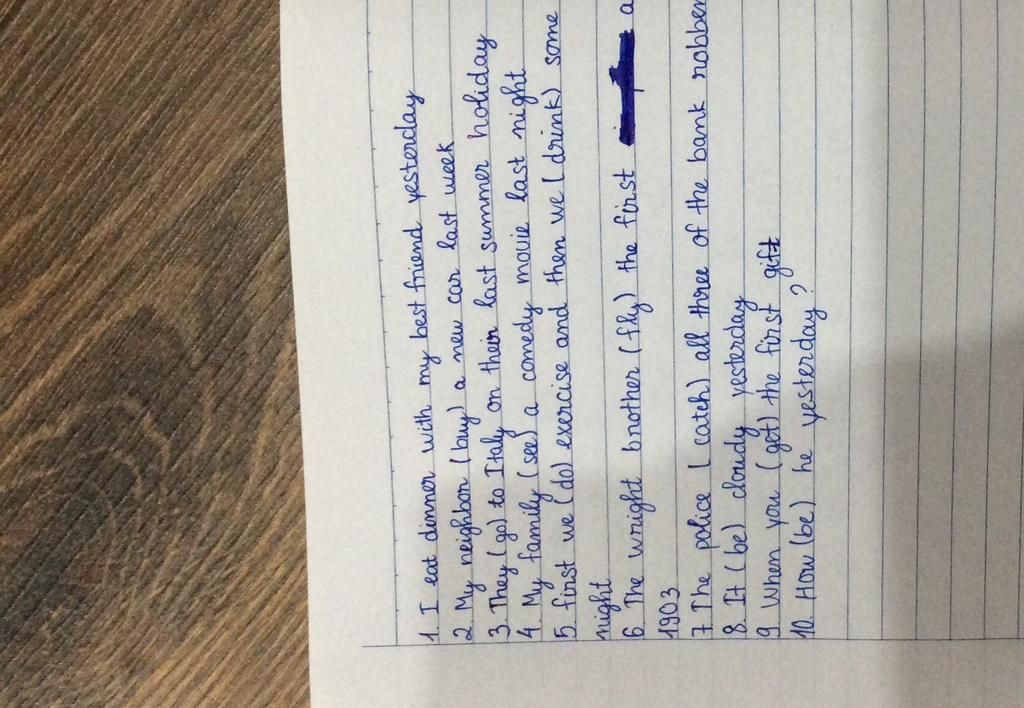 1. I eat dinner with my best friend yesterday
2. My neighbor (buy) a new car last week
3. They (go) to Italy on their last summer holiday
4. My family (see) a comedy movie last night
5. first we (do) exercise and then we (drink) some
night
6. The wright brother (fly) the first a
1903
7. The police (catch) all three of the bank robber
8. It (be) cloudy yesterday
9. When you (get) the first gift
10. How (be) he yesterday?